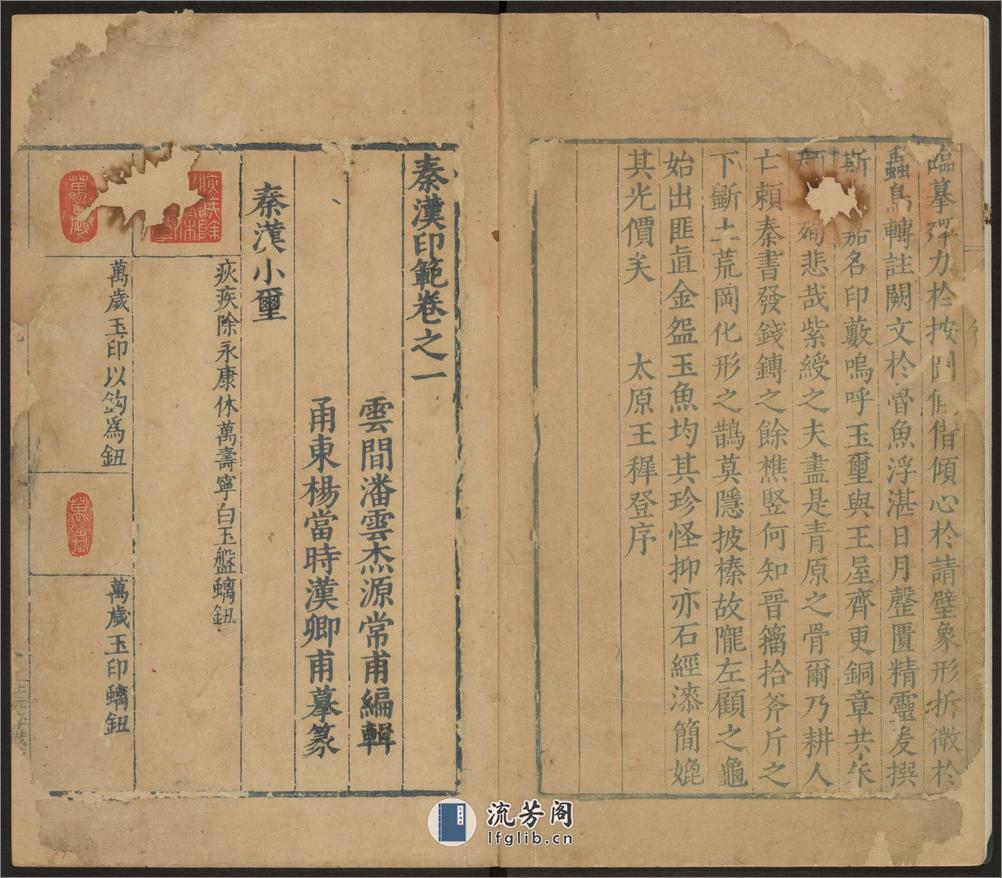 臨摹殫力於按圖假借傾心於請璧象形折微於
蟲鳥轉註闕文於魯魚浮湛日月罄匱精靈爰撰
斯 茄名印藪嗚呼玉璽與王屋齊更銅章共
殉悲哉紫綬之夫盡是青原之骨爾乃耕人
亡賴秦書發錢鎛之餘樵豎何知晉籀拾斧斤之
下斸土荒岡化形之鵲莫隱披榛故隴左顧之龜
始出匪直金盌玉魚均其珍怪抑亦石經漆簡媲
其光價矣 太原王穉登序
秦漢印範卷之一
雲間潘雲杰源常甫編輯
甬東楊當時漢卿甫摹篆
秦漢小璽
疢疾除
疢疾除永康休萬壽寧白玉盤螭鈕
萬歲
萬歲玉印以鈎爲鈕
萬歲
萬歲玉印螭鈕
流芳阁
lfglib.cn